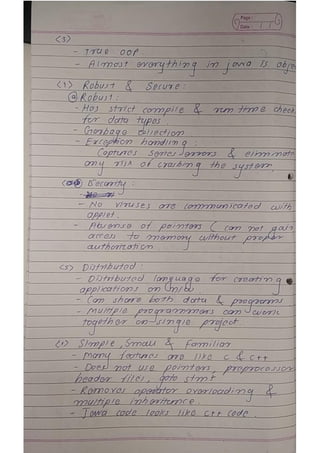 Page :
Date : / /
<3>
- True OOP.
- Almost everything in java is objec
<4> Robust & Secure :
@ Robust :
- Has strict compile & run time check
for data types
- Garbage collection
- Exception handling
Captures series errors & eliminate
any risk of crashing the system
Security :
- No viruses are communicated with
applet.
- Absence of pointers ( can not gain
access to memory without proper
authorization
<5> Distributed :
- Distributed language for creating
applications on n/ws
- Can share both data & programs
- Multiple programmers can work
together on single project.
Simple, Small & Familiar
- Many features are like C & C++
- Does not use pointers, preprocessor
header files, goto stmt
- Removes operator overloading &
multiple inheritence.
- Java code looks like C++ code.